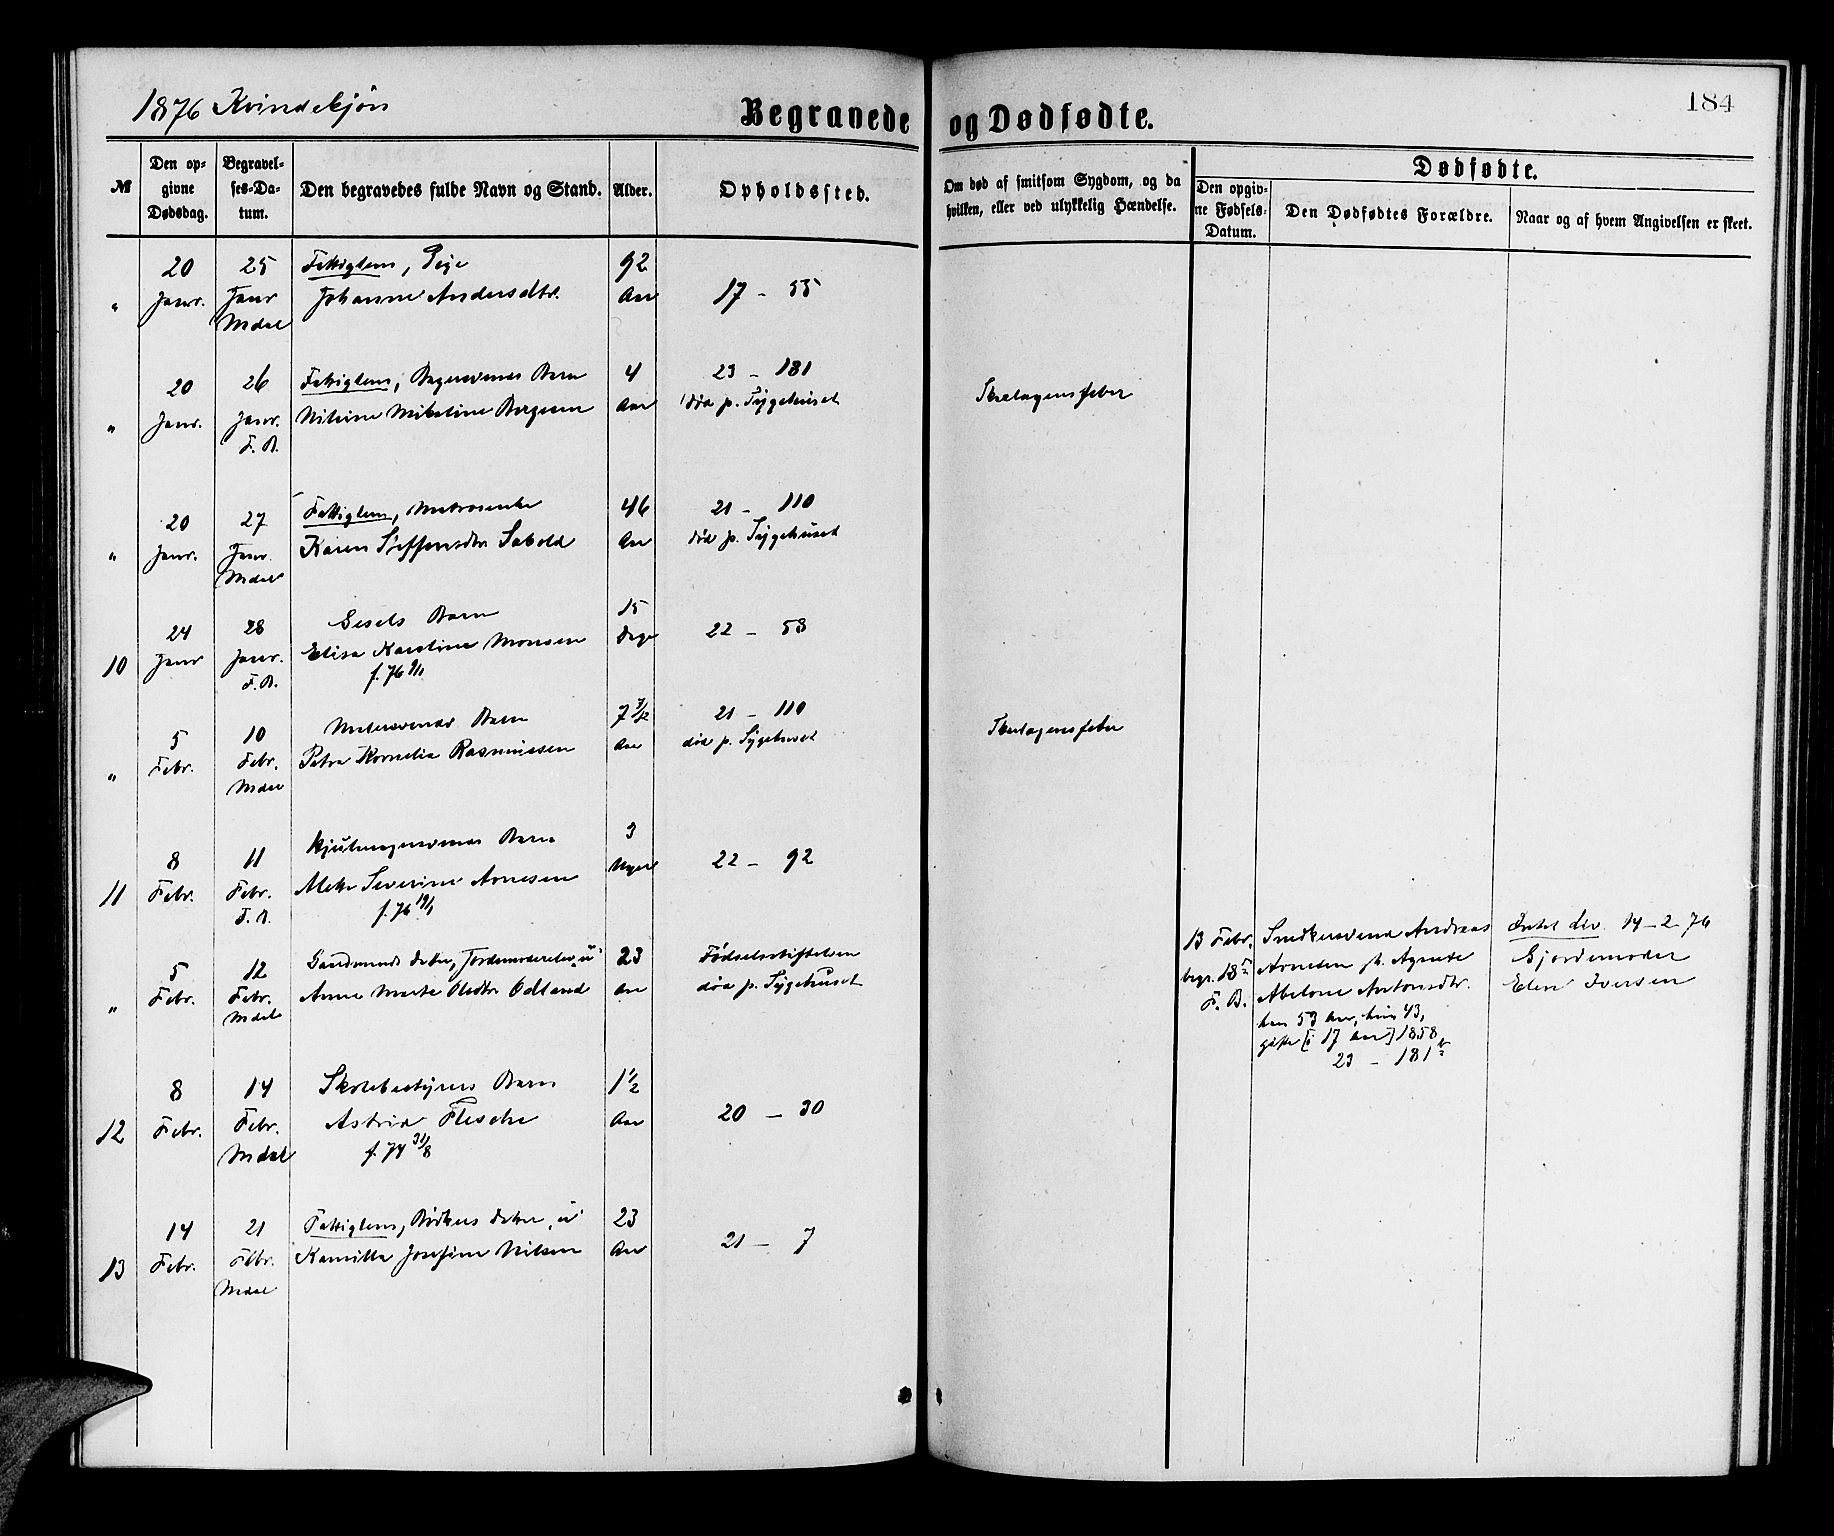 1876 Kvindekjøn
Begravede og Dødfødte.
184
№
Den opgivne Dødsdag.
Begravelses-Datum.
Den begravedes fulde Navn og Stand.
Alder.
Opholdssted.
Om død af smitsom Sygdom, og da hvilken, eller ved ulykkelig Hændelse.
Dødfødte.
Den opgivne Fødsels-Datum.
Den Dødfødtes Forældre.
Naar og af hvem Angivelsen er skeet.
20 25 Fattiglem, Pige 92
" Janr. Janr Johanne Andersdtr. Aar 17 - 55
Mdal
20 26 Fattiglem, Barn 4 23 - 181
" Janr. Janr. Mikeline Aar død p. Sygehuset Skarlagensfeber
F. B.
20 27 Fattiglem, 46 21 - 110
" Janr. Janr. Karen Steffensdtr Aar død p. Sygehuset
Mdal
24 28 Gesels Barn 15 22 - 58
10 Janr Janr. Elisa Karoline Monsen Dage
F. B. f. 76 9/1
5 10 Barn 7 21 - 110
" Febr. Febr. Petra Kornelia Rasmussen Aar død p. Sygehuset Skarlagensfeber
Mdal
8 11 Barn 3 22 - 92
11 Febr. Febr. Severine Arnesen Uger
F. B. f. 76 19/1
5 12 Datter, 23 Fødselsstiftelsen
" Febr. Febr. Anne Marta Olsdtr Odland Aar død p. Sygehuset
Mdal
13 Febr. Andreas Intet Lev. 14-2-76
begr. 18de Arnesen og Agnete Gjordemoder
F. B. Abelone Antonsdtr. Elen Iversen
han 53 Aar, hun 43,
gifte [i 17 Aar] 1858
23 - 181
8 14 Skolebestyrers Barn 1 1/2 20 - 30
12 Febr. Febr. Astrid Flesche Aar
Mdal f. 74 31/8
14 21 Fattiglem, Bødkers Datter, u 23 21 - 7
13 Febr. Febr. Kamilla Josefine Nilsen Aar
Mdal